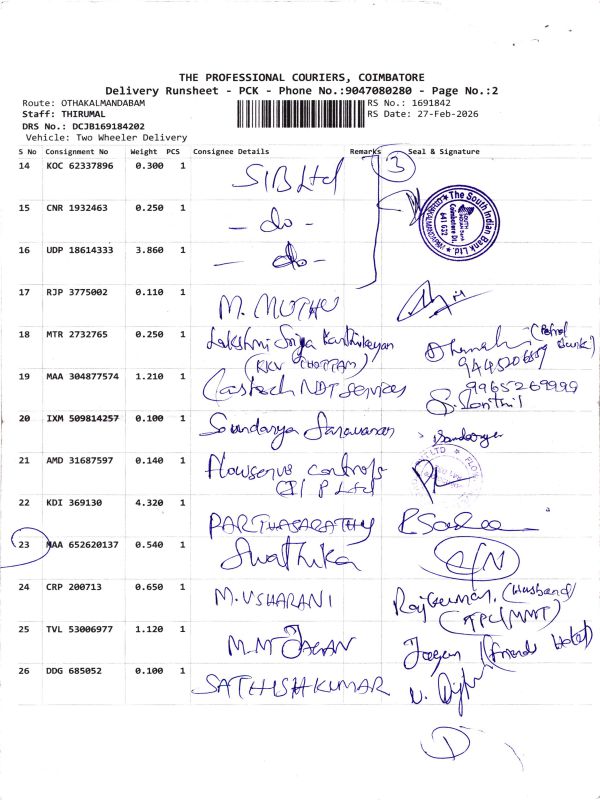 THE PROFESSIONAL COURIERS, COIMBATORE
Delivery Runsheet - PCK - Phone No.:9047080280 - Page No.:2
Route: OTHAKALMANDABAM
RS No.: 1691842
Staff: THIRUMAL
RS Date: 27-Feb-2026
DRS No.: DCJB169184202
Vehicle: Two Wheeler Delivery
S No Consignment No Weight PCS Consignee Details Remarks Seal & Signature
14 KOC 62337896 0.300 1 SIB Ltd 3
15 CNR 1932463 0.250 1 - do -
The South Indian Bank Ltd.
Coimbatore Dt.
641 032
16 UDP 18614333 3.860 1 - do -
17 RJP 3775002 0.110 1 M. MUTHU
18 MTR 2732765 0.250 1 Lakshmi Karthikeyan (Petrol Bunk)
(KKV THOTTAM)
19 MAA 304877574 1.210 1 NDT Services 9965269999
S. Senthil
20 IXM 509814257 0.100 1 Soundarya Saravanan
21 AMD 31687597 0.140 1 Flowserve controls
(I) P Ltd
22 KDI 369130 4.320 1 PARTHASARATHY
23 MAA 652620137 0.540 1 Swathika C/N
24 CRP 200713 0.650 1 M. USHARANI Rajkumar, (Husband)
25 TVL 53006977 1.120 1 M.M JAGAN Jagan (Friends Hotel)
26 DDG 685052 0.100 1 SATHISHKUMAR